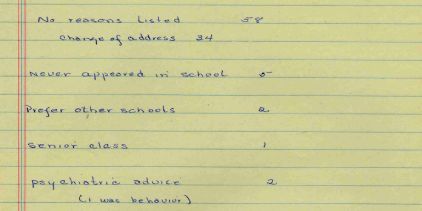 No reasons Listed 58
change of address 34
Never appeared in school 5
Prefer other schools 2
senior class 1
psychiatric advice 2
(1 was behavior)